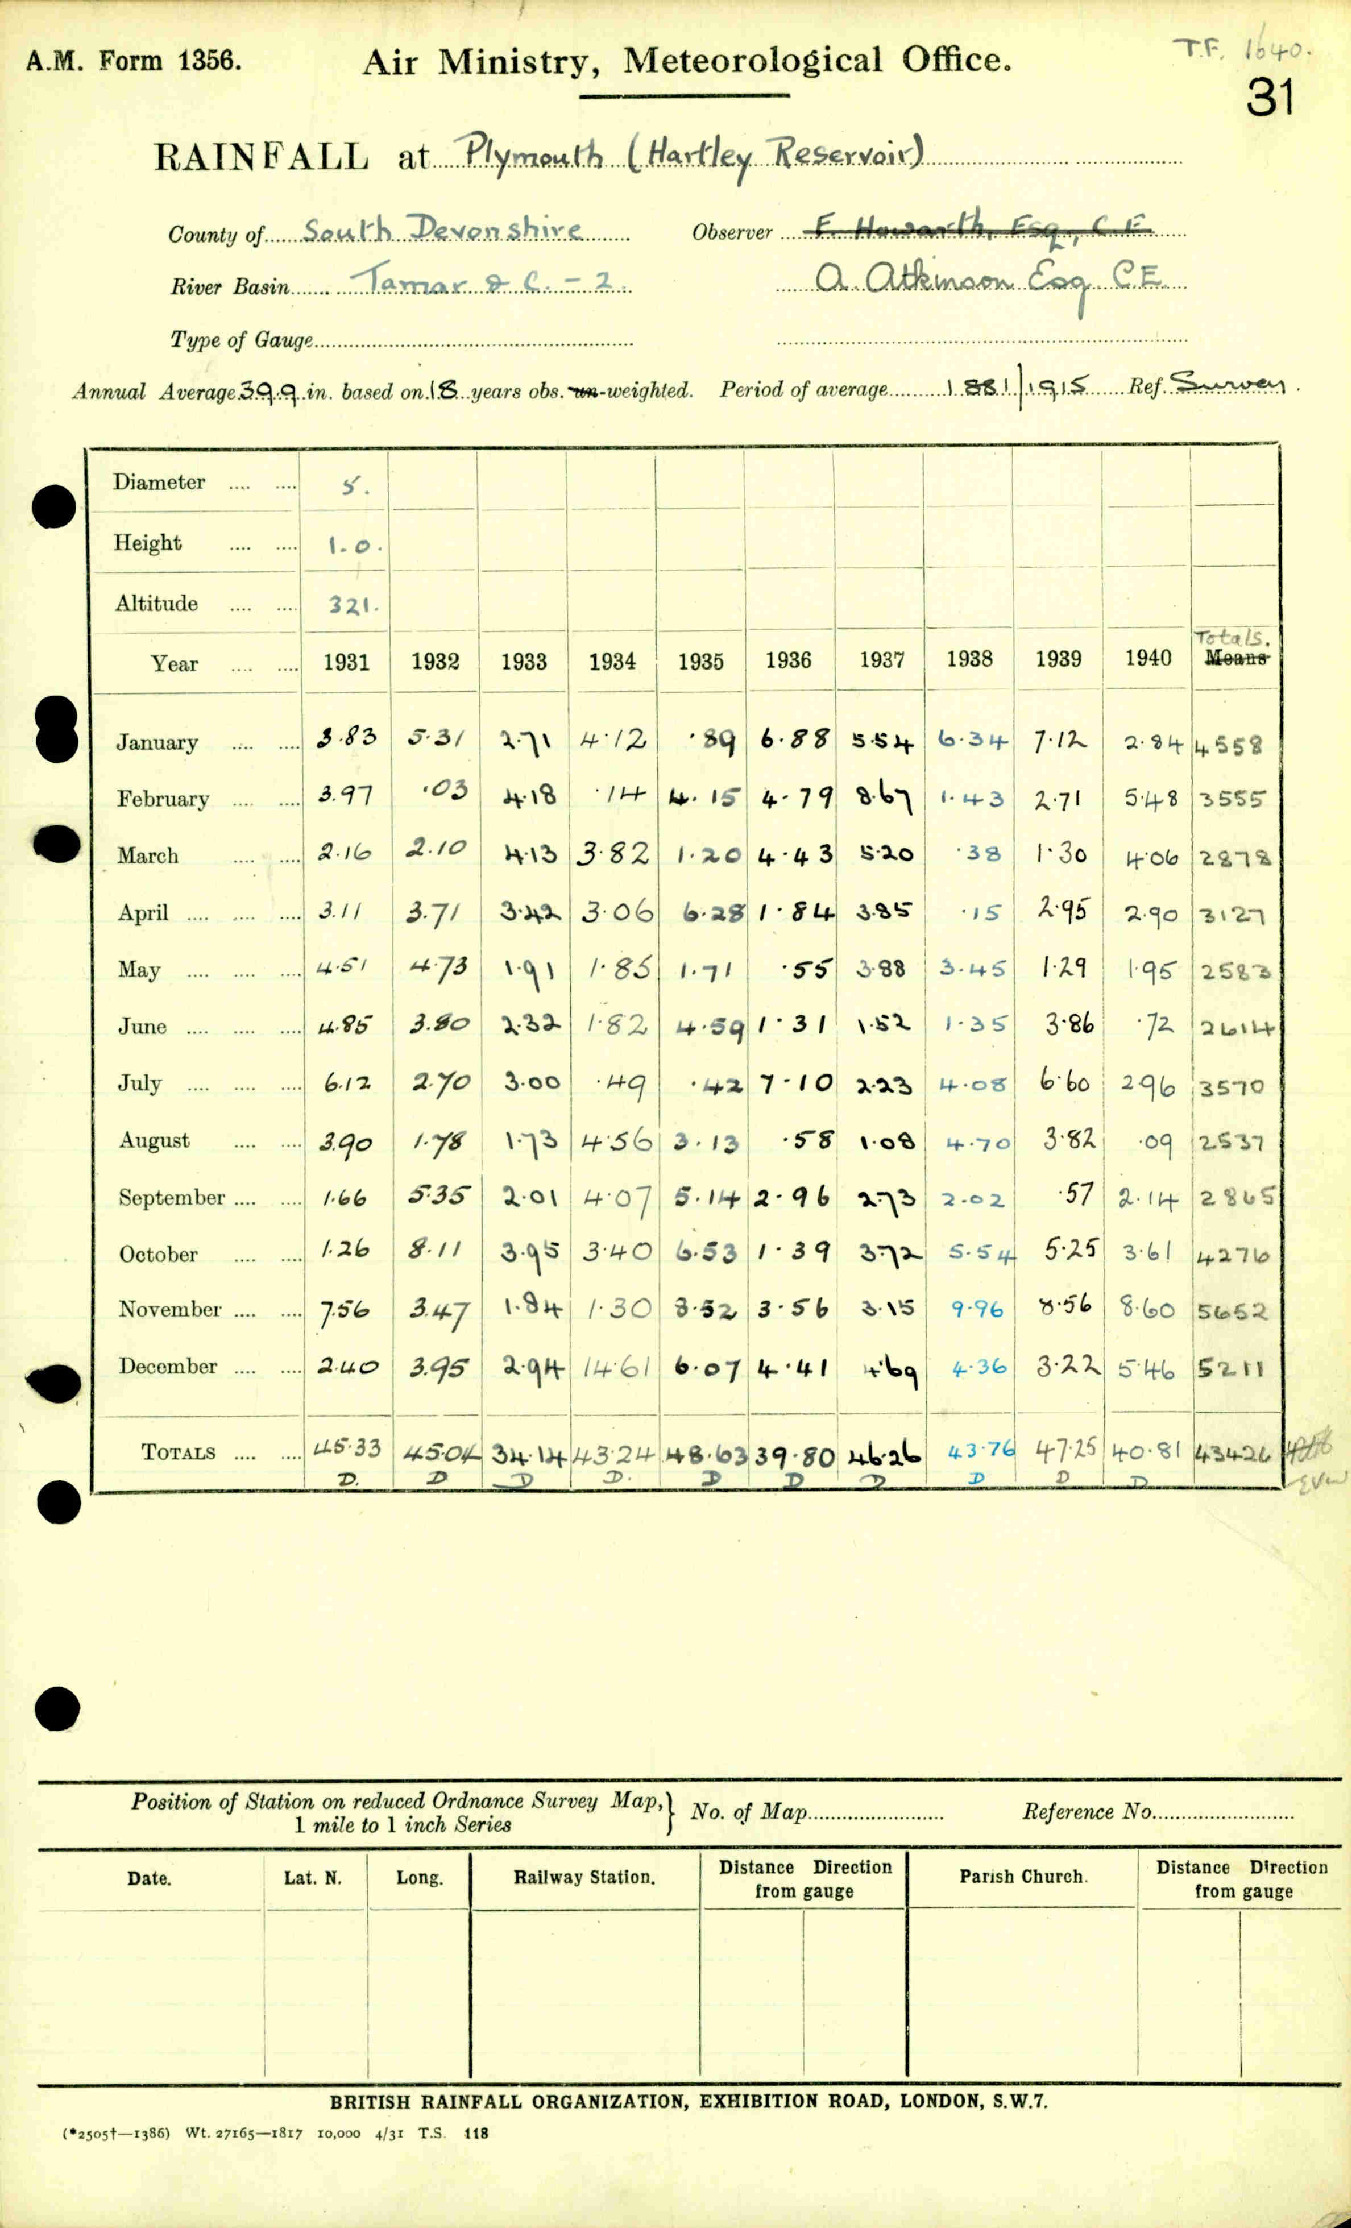 T.F. 1640.
A.M. Form 1356. Air Ministry, Meteorological Office.
31
RAINFALL at Plymouth (Hartley Reservoir)
County of South Devonshire Observer E. Howarth, Esq., C.E.
River Basin Tamar & C. - 2. A. Atkinson Esq. C.E.
Type of Gauge
Annual Average 39.9 in. based on 18 years obs. un-weighted. Period of average 1881/1915 Ref. Survey.
Diameter 5.
Height 1.0.
Altitude 321.
Totals.
Year 1931 1932 1933 1934 1935 1936 1937 1938 1939 1940 Means
January 3.83 5.31 2.71 4.12 .89 6.88 5.54 6.34 7.12 2.84 4558
February 3.97 .03 4.18 .14 4.15 4.79 8.67 1.43 2.71 5.48 3555
March 2.16 2.10 4.13 3.82 1.20 4.43 5.20 .38 1.30 4.06 2878
April 3.11 3.71 3.42 3.06 6.28 1.84 3.85 .15 2.95 2.90 3127
May 4.51 4.73 1.91 1.85 1.71 .55 3.88 3.45 1.29 1.95 2583
June 4.85 3.80 2.32 1.82 4.59 1.31 1.52 1.35 3.86 .72 2614
July 6.12 2.70 3.00 .49 .42 7.10 2.23 4.08 6.60 2.96 3570
August 3.90 1.78 1.73 4.56 3.13 .58 1.08 4.70 3.82 .09 2537
September 1.66 5.35 2.01 4.07 5.14 2.96 2.73 2.02 .57 2.14 2865
October 1.26 8.11 3.95 3.40 6.53 1.39 3.72 5.54 5.25 3.61 4276
November 7.56 3.47 1.84 1.30 8.52 3.56 3.15 9.96 8.56 8.60 5652
December 2.40 3.95 2.94 14.61 6.07 4.41 4.69 4.36 3.22 5.46 5211
TOTALS 45.33 45.04 34.14 43.24 48.63 39.80 46.26 43.76 47.25 40.81 43426
D. D D D. D D D D D D
Position of Station on reduced Ordnance Survey Map,} No. of Map Reference No.
1 mile to 1 inch Series
Date. Lat. N. Long. Railway Station. Distance Direction from gauge Parish Church. Distance Direction from gauge
BRITISH RAINFALL ORGANIZATION, EXHIBITION ROAD, LONDON, S.W.7.
(*2505†—1386) Wt. 27165—1817 10,000 4/31 T.S. 118